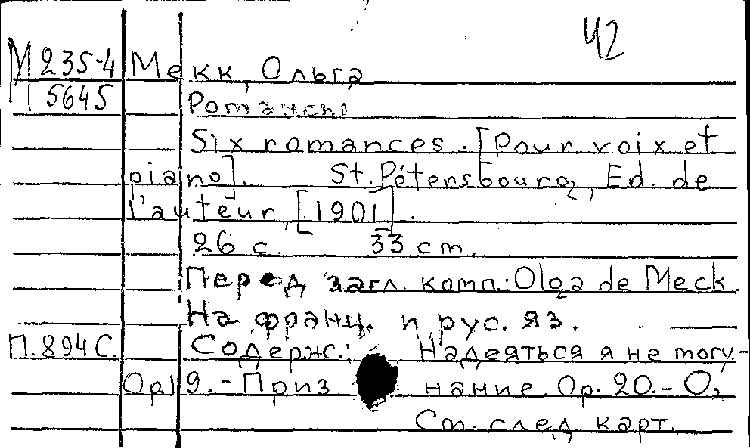 42
М 235-4 Мекк, Ольга
П 5645 Романсы
Six romances. [Pour voix et
piano]. St. Pétersbourg, Ed. de
l'auteur, [1901].
26 с. 33 cm.
Перед загл. комп.: Olga de Meck.
На франц. и рус. яз.
П. 894 С. Содерж.: Надеяться я не могу-
Op. 19. - Приз нание Op. 20. - О,
См. след. карт.